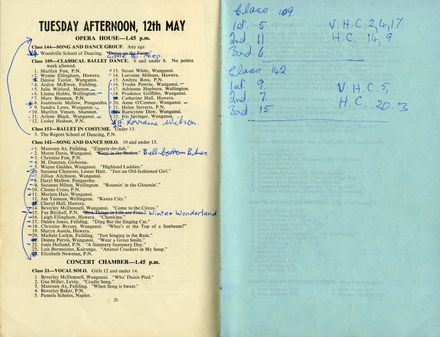 TUESDAY AFTERNOON, 12th MAY
OPERA HOUSE—1.45 p.m.
Class 144—SONG AND DANCE GROUP. Any age.
Woodville School of Dancing.
Class 109—CLASSICAL BALLET DANCE. 6 and under 8. No points
work allowed.
1. Marilyn Fox, P.N.
2. Wynne Ellingham, Hawera.
3. Denise Taylor, Wanganui.
4. Aiden McEwen, Feilding.
5. Julie Wixted, Marton.
6. Liona Halliday, Wanganui.
7. Mary Brennan, P.N.
8. Jeannmarie Mellow, Pongaroa.
9. Sandra Leona, Wanganui.
10. Marilyn Vinson, Shannon.
11. Arlene Black, Wanganui.
12. Lesley Hodson, P.N.
13. Susan White, Wanganui.
14. Lorraine Milham, Hawera.
15. Andrea Ross, P.N.
16. Trudie Powrie, Wanganui.
17. Adrienne Hepburn, Wellington.
18. Prudence Griffiths, Wanganui.
19. Catherine Hall, Hawera.
20. Anne O'Connor, Wanganui.
21. Helen Stevens, P.N.
22. Raewynne Dow, Wanganui.
23. Iris Springer, Wanganui.
Lorraine
Class 153—BALLET IN COSTUME. Under 13.
5. The Regent School of Dancing, P.N.
Class 142—SONG AND DANCE SOLO. 10 and under 13.
1. Maureen Ax, Feilding. "Zippety-de-dah."
2. Maree Davis, Wanganui. Bell-bottom Blues
3. Christine Fox, P.N.
4. M. Dunstan, Gisborne.
5. Wayne Geddes, Wanganui. "Highland Laddies."
6. Suzanne Clements, Lower Hutt. "Just an Old-fashioned Girl."
7. Jillian Aitchison, Wanganui.
8. Daryl Mellow, Pongaroa.
9. Suzanne Hilton, Wellington. "Roamin' in the Gloamin'."
10. Cleone Cross, P.N.
11. Mariata Hair, Wanganui.
12. Jan Yeoman, Wellington. "Kansas City."
13. Cheryl Hall, Hawera.
14. Beverley McDonnell, Wanganui. "Come to the Circus."
15. Pat Birthall, P.N. "And Things in Life are Free." Winter Wonderland
16. Leigh Ellingham, Hawera. "Chonkina."
17. Deidre Jones, Feilding. "Ding Bot the Singing Cat."
18. Christine Bryant, Wanganui. "What's at the Top of a Sunbeam?"
19. Sharyn Austin, Hawera.
20. Michele Larkin, Feilding. "Just Singing in the Rain."
21. Donna Purvis, Wanganui. "Wear a Great Smile."
22. Janis Holland, P.N. "A Simmery Summery Day."
23. Lois Burmeister, Kairanga. "Animal Crackers in My Soup."
24. Elizabeth Newman, P.N.
CONCERT CHAMBER—1.45 p.m.
Class 21—VOCAL SOLO. Girls 12 and under 14.
1. Beverley McDonnell, Wanganui. "Wha' Daisie Pied."
2. Gae Miller, Levin. "Cradle Song."
3. Maureen Ax, Feilding. "When Song is Sweet."
4. Beverley Baker, P.N.
5. Pamela Scholes, Napier.
20
Class 109
1st. 5 V.H.C. 2,4,17
2nd. 11 H.C. 14, 9
3rd. 6
Class 142
1st 9 V.H.C. 5,
2nd. 7 H.C. 20 3
3rd. 15